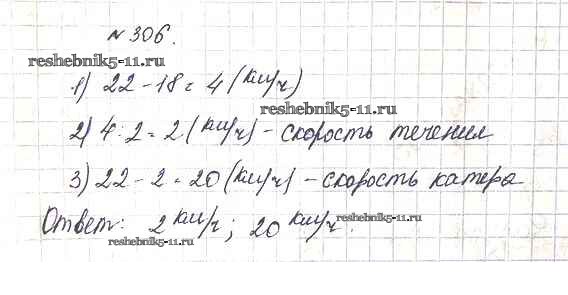 № 306.
reshebnik5-11.ru
1) 22 - 18 = 4 (км/ч)
reshebnik5-11.ru
2) 4 : 2 = 2 (км/ч) - скорость течения
3) 22 - 2 = 20 (км/ч) - скорость катера
Ответ: 2 км/ч; 20 км/ч.
reshebnik5-11.ru
reshebnik5-11.ru